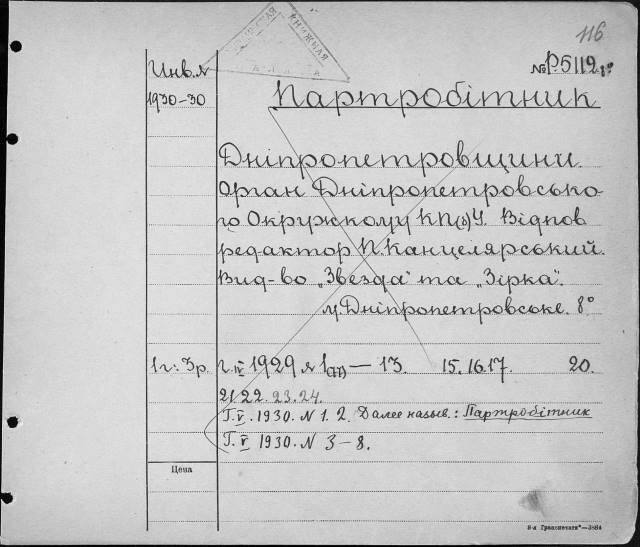 116
КНИЖНАЯ
№ Р.5112 8°
Инв. №
1930-30
Партробітник
Дніпропетровщини.
Орган Дніпропетровсько-
го Окружкому КП(б)У. Відпов
редактор П. Канцелярський.
Вид-во "Звезда" та "Зірка".
м. Дніпропетровське. 8°
1 г: 3р. г. IV 1929 № 1(77) — 13. 15. 16. 17. 20.
21. 22. 23. 24.
Г. V. 1930. N 1. 2. Далее назыв.: Партробітник
Г. V 1930. N 3-8.
Цена
3-я Гравмечати"—3884